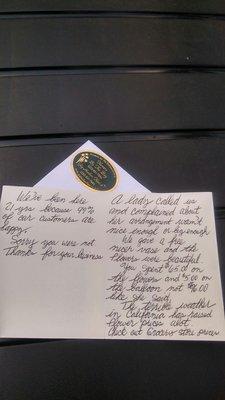 We've been here
21 yrs because 99%
of our customers are
happy.
Sorry you were not
Thanks for your business
A lady called us
and complained about
her arrangement wasn't
nice enough or big enough
We gave a free
nicer vase and the
flowers were beautiful.
You spent $65.00 on
the flowers and $5.00 on
the balloon not $96.00
like she said.
The terrible weather
in California has raised
flower prices alot.
Check out Grocery store prices